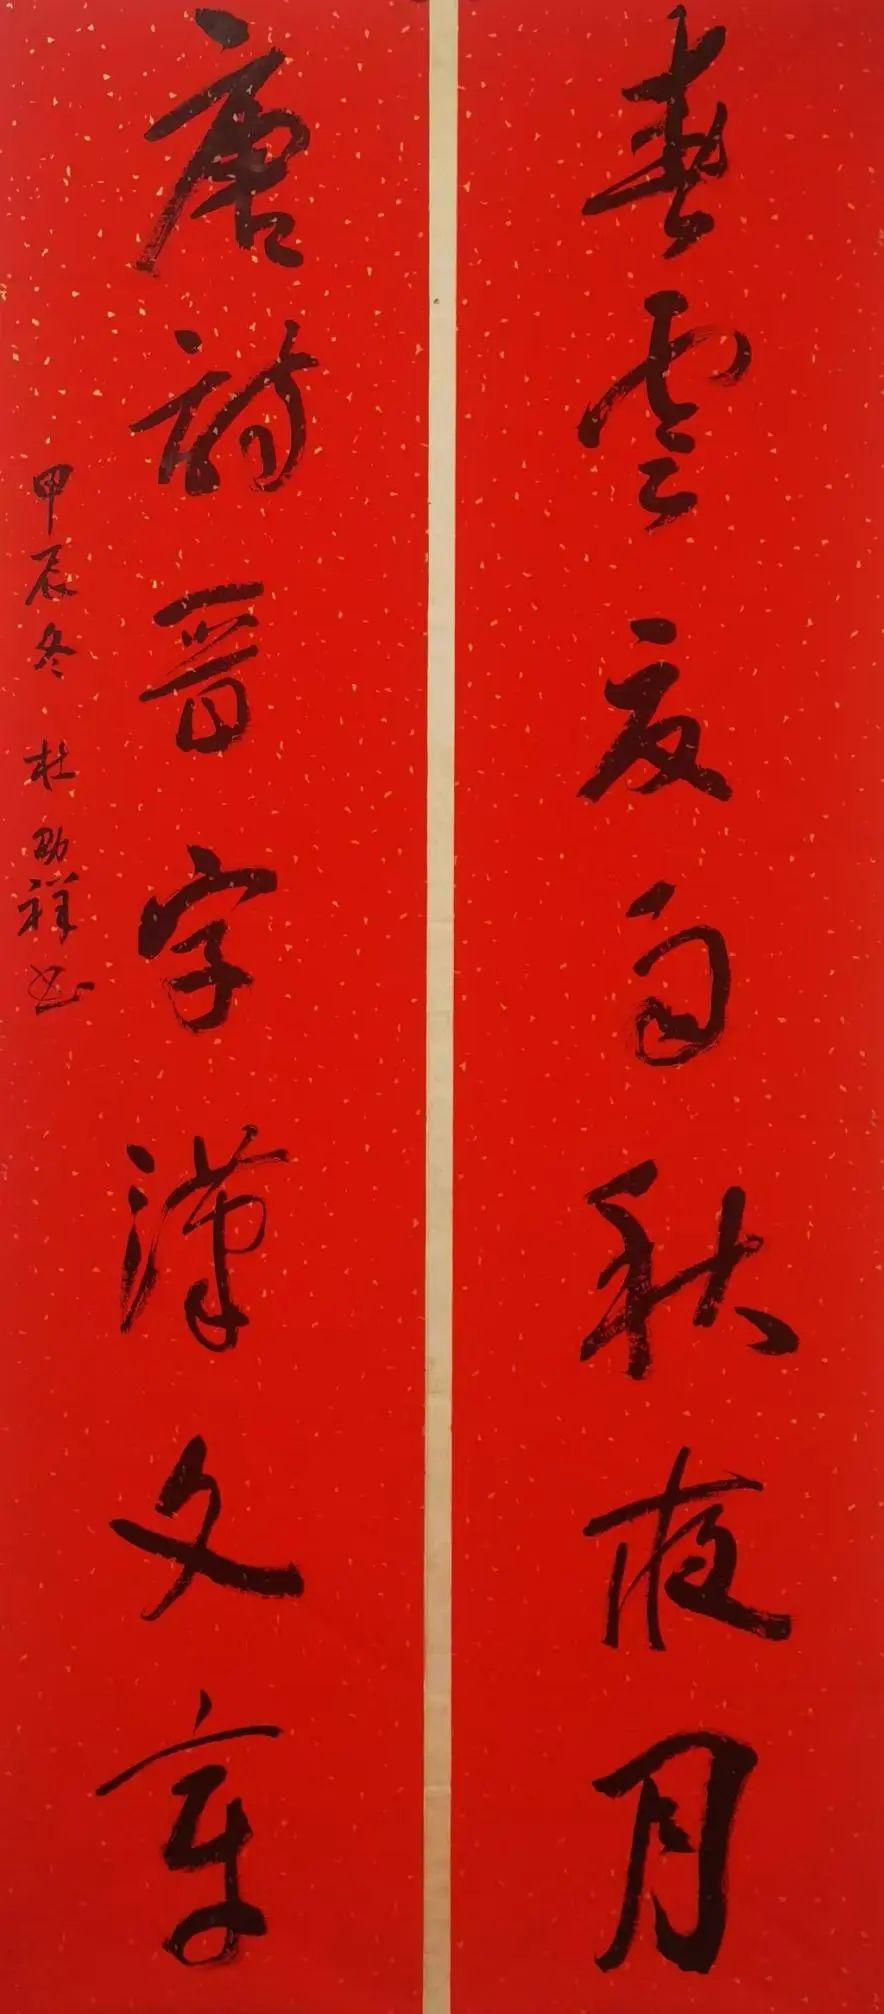 春雲夏雨秋夜月
唐詩晉字漢文章
甲辰冬 杜勋祥书